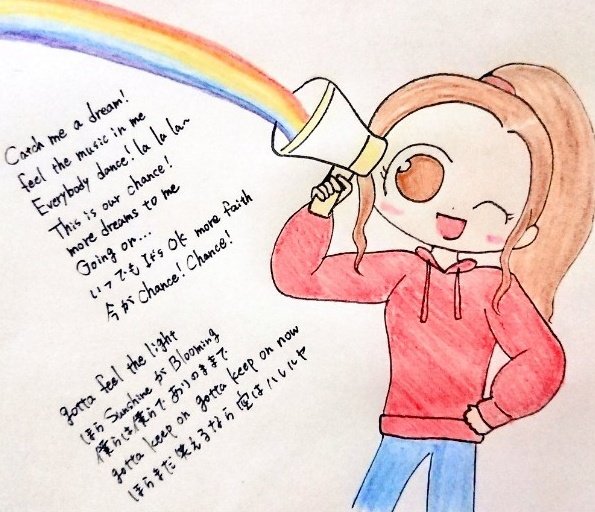 Catch me a dream!
feel the music in me
Everybody dance! la la la~
This is our chance!
more dreams to me
Going on...
いつでも It's OK more faith
今が chance! Chance!
gotta feel the light
ほら Sunshine が Blooming
僕らは僕らでありのままで
gotta keep on gotta keep on now
ほらまだ笑えるなら空はハレルヤ